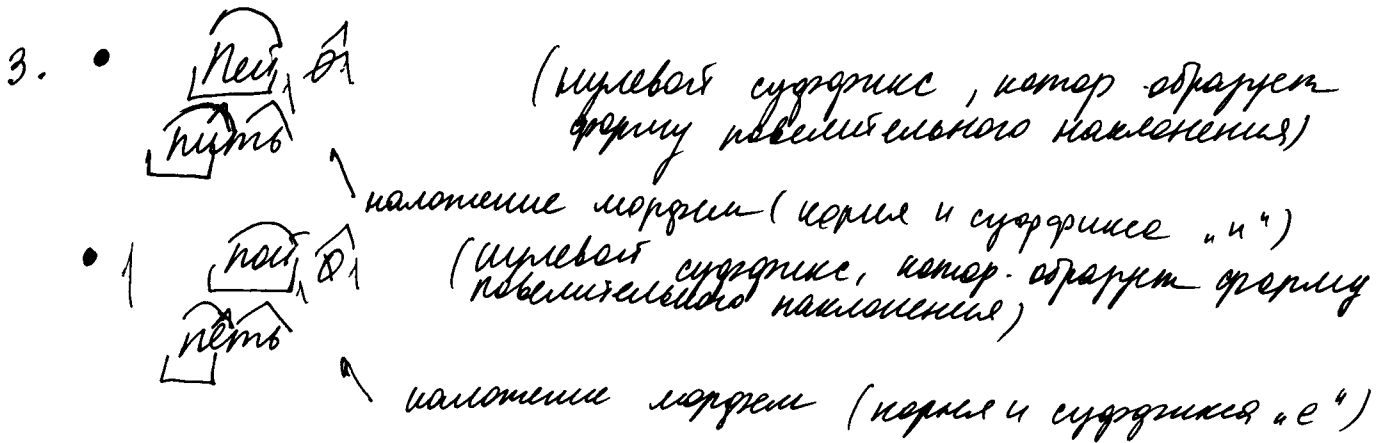 3. • Пей ø (нулевой суффикс, котор. образует
форму повелительного наклонения)
пить
наложение морфем (корня и суффикса „и“)
• пой ø (нулевой суффикс, котор. образует форму
повелительного наклонения)
петь
наложение морфем (корня и суффикса „е“)